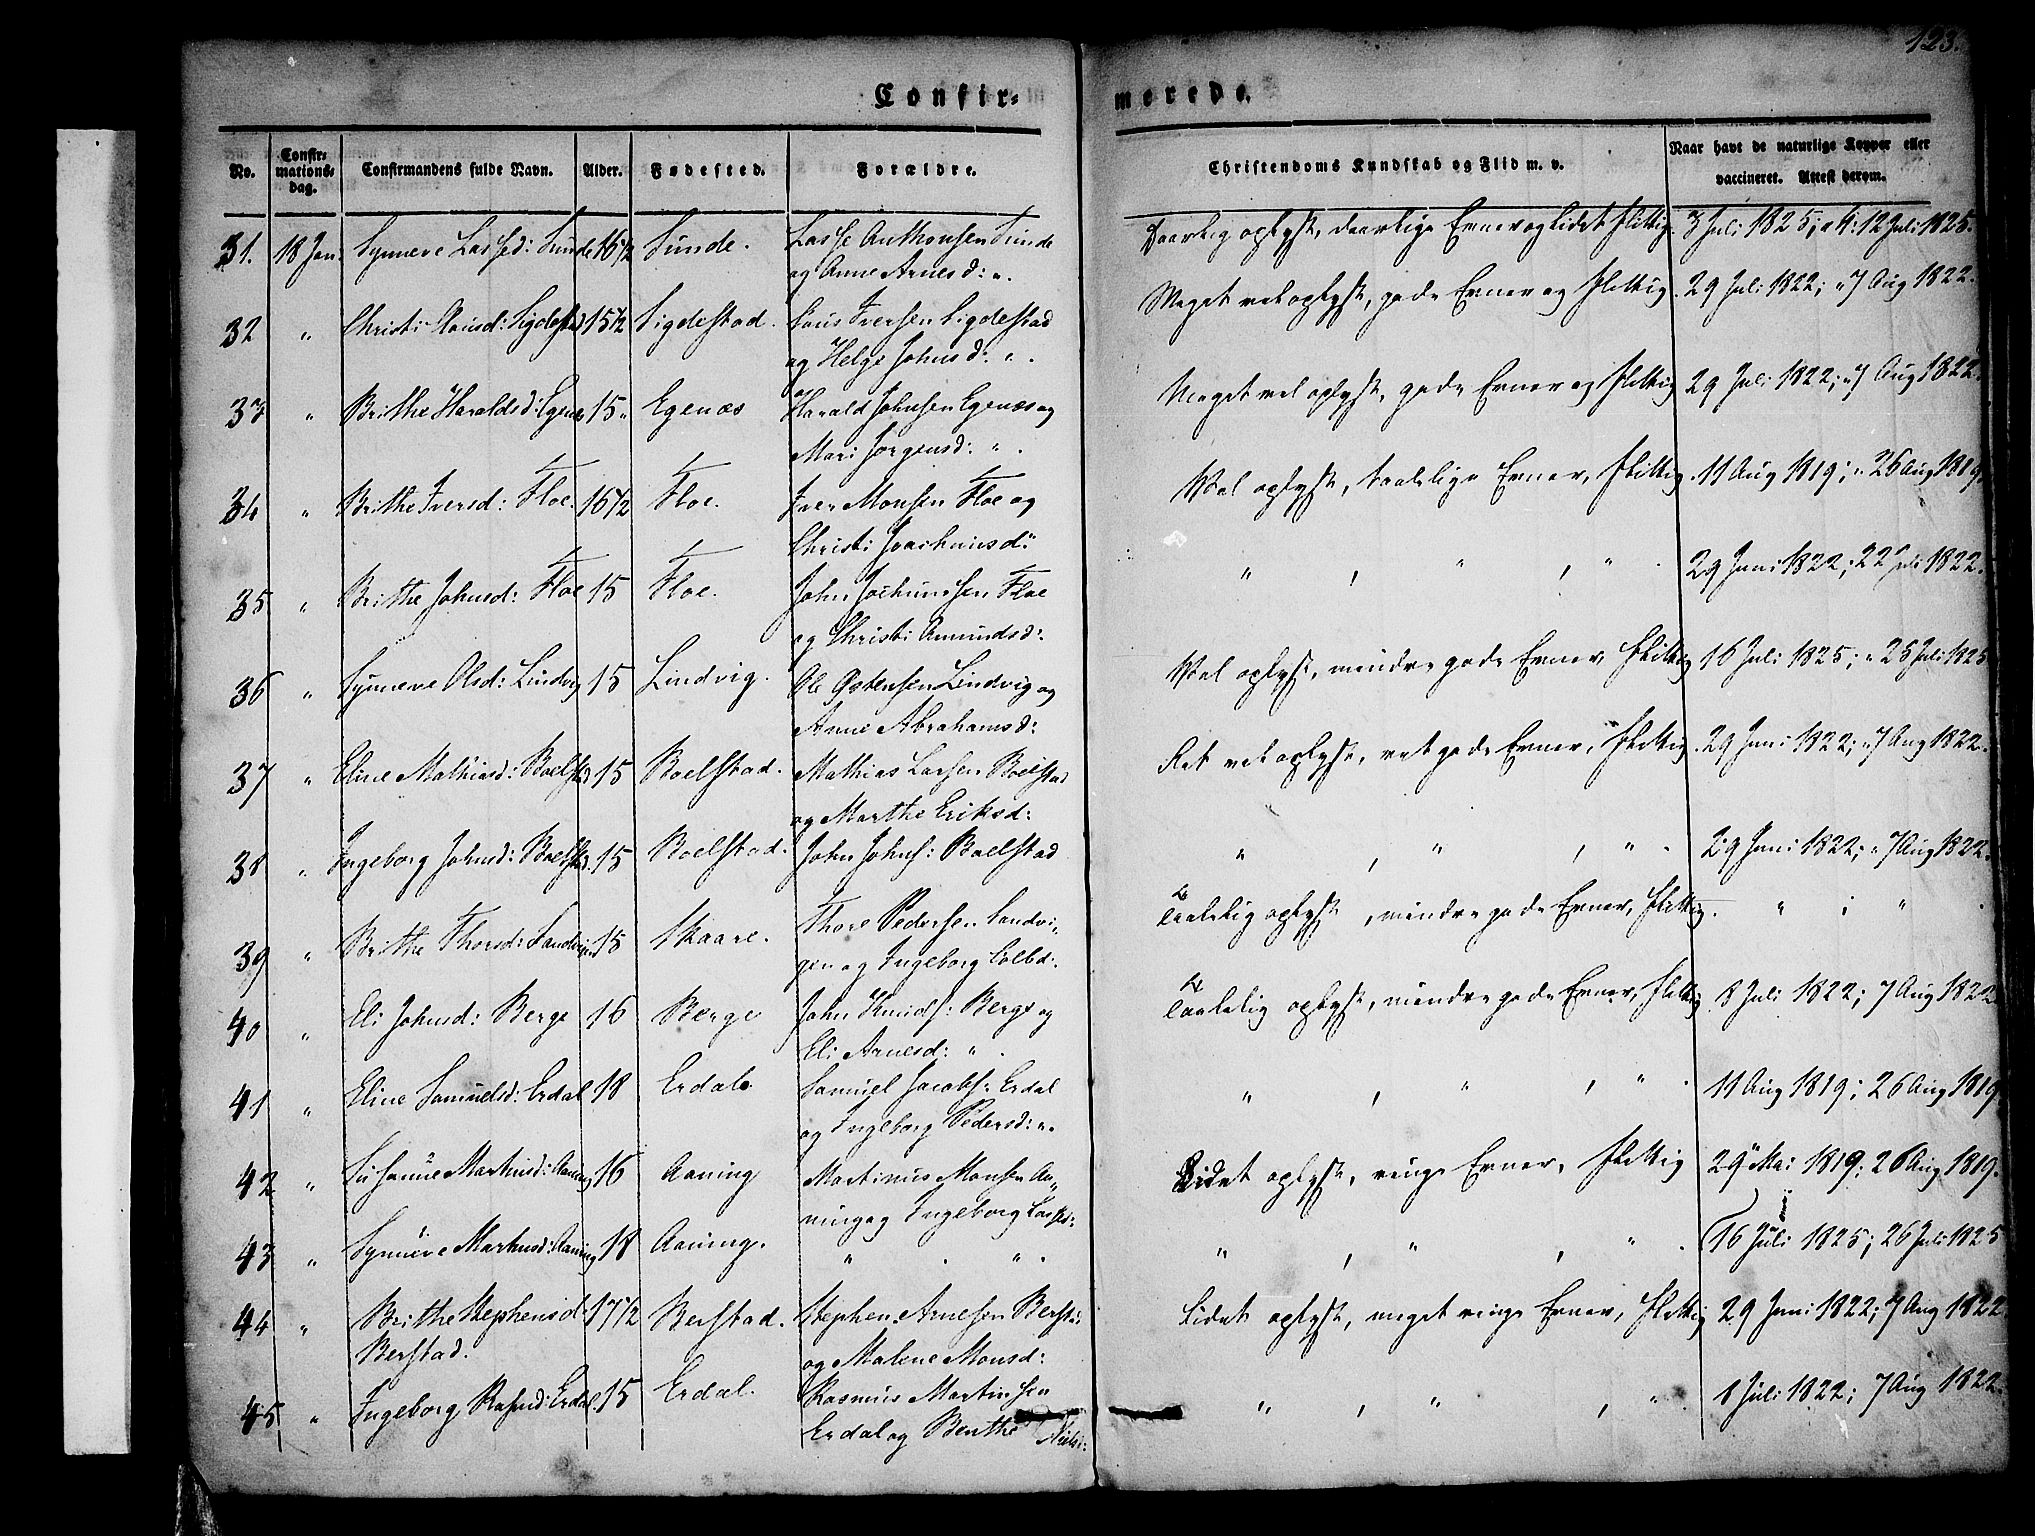 123.
Confir= merede.
No. Confir= mations= dag. Confirmandens fulde Navn. Alder. Fødested. Forældre. Christendoms Kundskab og Flid m. v. Naar havt de naturlige Kopper eller vaccineret. Attest derom.
31. 18 Jun: Synneve Lassed: Sunde 16 1/2 Sunde. Lasse Anthonsen Sunde Daarlig oplyst, daarlige Evner og lidet flittig. 3 Juli 1825; a K: 12 Juli 1825.
og Anne Arnesd: „.
32 „ Christi Aansd: Sigdestad 15 1/2 Sigdestad. Iversen Sigdestad Meget vel oplyst, gode Evner og flittig. 29 Juli 1822; „ 7 Aug 1822.
og Helge Johnsd: „.
33 „ Brithe Haraldsd: Egenæs 15 „ Egenæs Harald Johnsen Egenæs og Meget vel oplyst, gode Evner og flittig 29 Juli 1822; „ 7 Aug 1822.
Mari Jørgensd: „.
34 „ Brithe Iversd: Floe. 16 1/2 Floe. Iver Monsen Floe og Vel oplyst, taalelige Evner, flittig. 11 Aug 1819; „ 26 Aug 1819
Christi Joachumsd: „
35 „ Brithe Johnsd: Floe 15 Floe. John Jochumsen Floe „ , „ , „ . 29 Juni 1822; 22 Juli 1822.
og Christi Amundsd:
36 „ Synneve Olsd: Lindvig 15 Lindvig. Ole Østensen Lindvig og Vel oplyst, mindre gode Evner, flittig 16 Juli 1825; „ 25 Juli 1825
Anne Abrahamsd:
37 „ Eline Mathiasd: Boelstad 15 Boelstad. Mathias Larsen Boelstad Ret vel oplyst, ret gode Evner, flittig. 29 Juni 1822; „ 7 Aug 1822.
og Marthe Eriksd:
38 „ Ingeborg Johnsd: Boelstad. 15 Boelstad. John Johns: Boelstad „ , „ , „ . 29 Juni 1822; „ 7 Aug 1822.
39 „ Brithe Thoresd: Sandvigen 15 Skaare. Thore Pedersen Sandvi= Taalelig oplyst, mindre gode Evner, flittig. „ ; „ .
gen og Ingeborg Colbd:.
40 „ Eli Johnsd: Berge 16 Berge John Knuds: Berge og Taalelig oplyst, mindre gode Evner, flittig 8 Juli 1822; 7 Aug 1822
Eli Arnesd: „ .
41 „ Eline Samuelsd: Erdal 18 Erdal. Samuel Jacobs: Erdal „ , „ , „ . 11 Aug 1819; 26 Aug 1819
og Ingeborg Pedersd: „.
42 „ Susanne Martinsd: Aaning 16 Aaning Martinus Monsen Aa= Lidet oplyst, ringe Evner, flittig 29 Mai 1819; 26 Aug 1819.
ning og Ingeborg Lassed:
43 „ Synneve Martinsd: Aaning 18 Aaning. „ . „ . „ , „ , „ . 16 Juli 1825; 26 Juli 1825
44 „ Brithe Stephensd: 17 1/2 Berstad. Stephen Arnesen Berstad Lidet oplyst, meget ringe Evner, flittig 29 Juni 1822; 7 Aug 1822
Berstad. og Malene Monsd:
45 „ Ingeborg Rasmd: Erdal. 15 Erdal. Rasmus Martinsen „ , „ , „ . 8 Juli 1822; 7 Aug 1822.
Erdal og Benthe Nielsd: